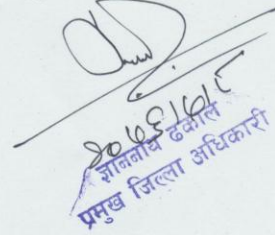 २०७३।७।८
ज्ञाननाथ ढकाल
प्रमुख जिल्ला अधिकारी